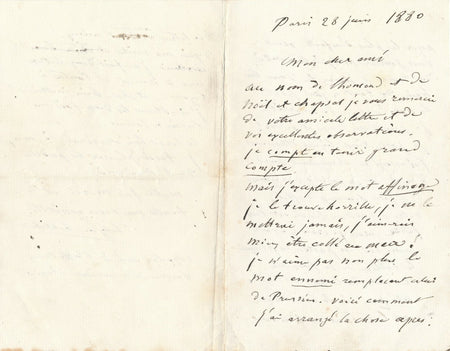 Paris 28 juin 1880
Mon cher ami
au nom de lhomond et de
Noël et chapsal je vous remercie
de votre amicale lettre et de
vos excellentes observations.
je compt en tenir grand
compte
mais j'excepte le mot affinage
je le trouve horrible, je ne le
mettrai jamais, j'aimerais
mieux être collé au mur!
je n'aime pas non plus le
mot ennemi remplaçant celui
de Prussien. voici comment
j'ai arrangé la chose après: